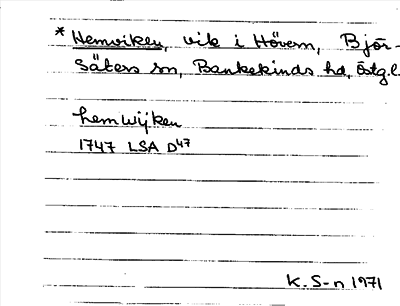 * Hemviken, vik i Hövern, Björ-
Säters sn, Bankekinds hd, Östg.l.
hemwijken
1747 LSA D47
K. S-n 1971